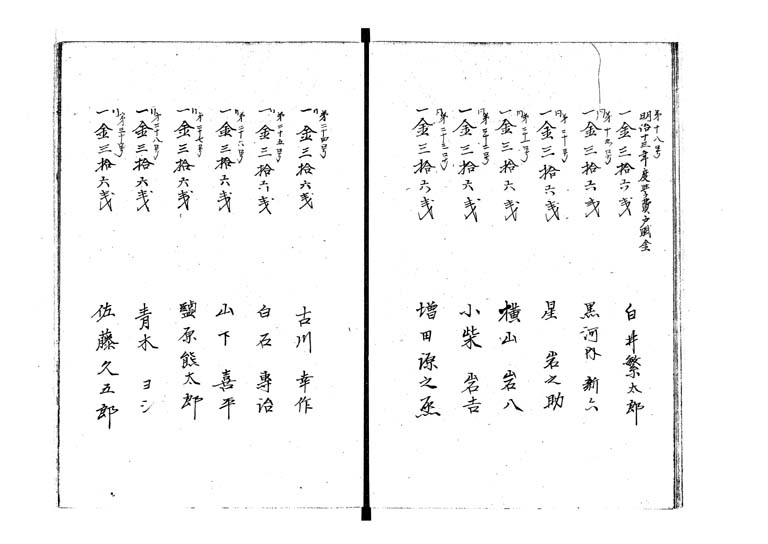 第十八号
明治十三年度学費戸賦金
一金三拾六戋
白井繁太郎
同 第十九号
一金三拾六戋
黒河内新六
同 第二十号
一金三拾六戋
星岩之助
同 第二十一号
一金三拾六戋
横山岩八
同 第二十二号
一金三拾六戋
小柴岩吉
同 第二十三号
一金三拾六戋
増田源之丞
〃 第二十四号
一金三拾六戋
古川幸作
〃 第二十五号
一金三拾六戋
白石専治
〃 第二十六号
一金三拾六戋
山下喜平
〃 第二十七号
一金三拾六戋
鹽原熊太郎
〃 第二十八号
一金三拾六戋
青木ヨシ
〃
一金三拾六戋
佐藤久五郎